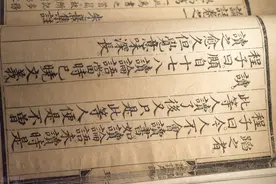 蹈之者
程子曰今人不會讀書如讀論語未讀時是
此等人讀了後又只是此等人便是不曾
讀
程子曰頤自十七八讀論語當時已曉文義
讀之愈久但覺意味深長